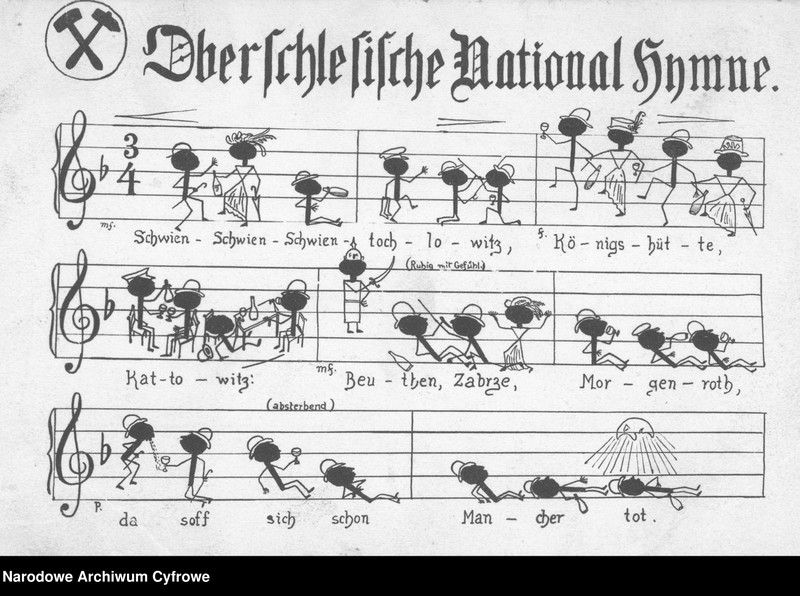 Oberschlesische National Hymne.
3
4
mf.
Schwien - Schwien - Schwien - toch - lo - witz, f. Kö - nigs - hüt - te,
(Ruhig mit Gefühl.)
mf.
Kat - to - witz: Beu - then, Zabrze, Mor - gen - roth,
(absterbend)
p.
da soff sich schon Man - cher tot.
Narodowe Archiwum Cyfrowe